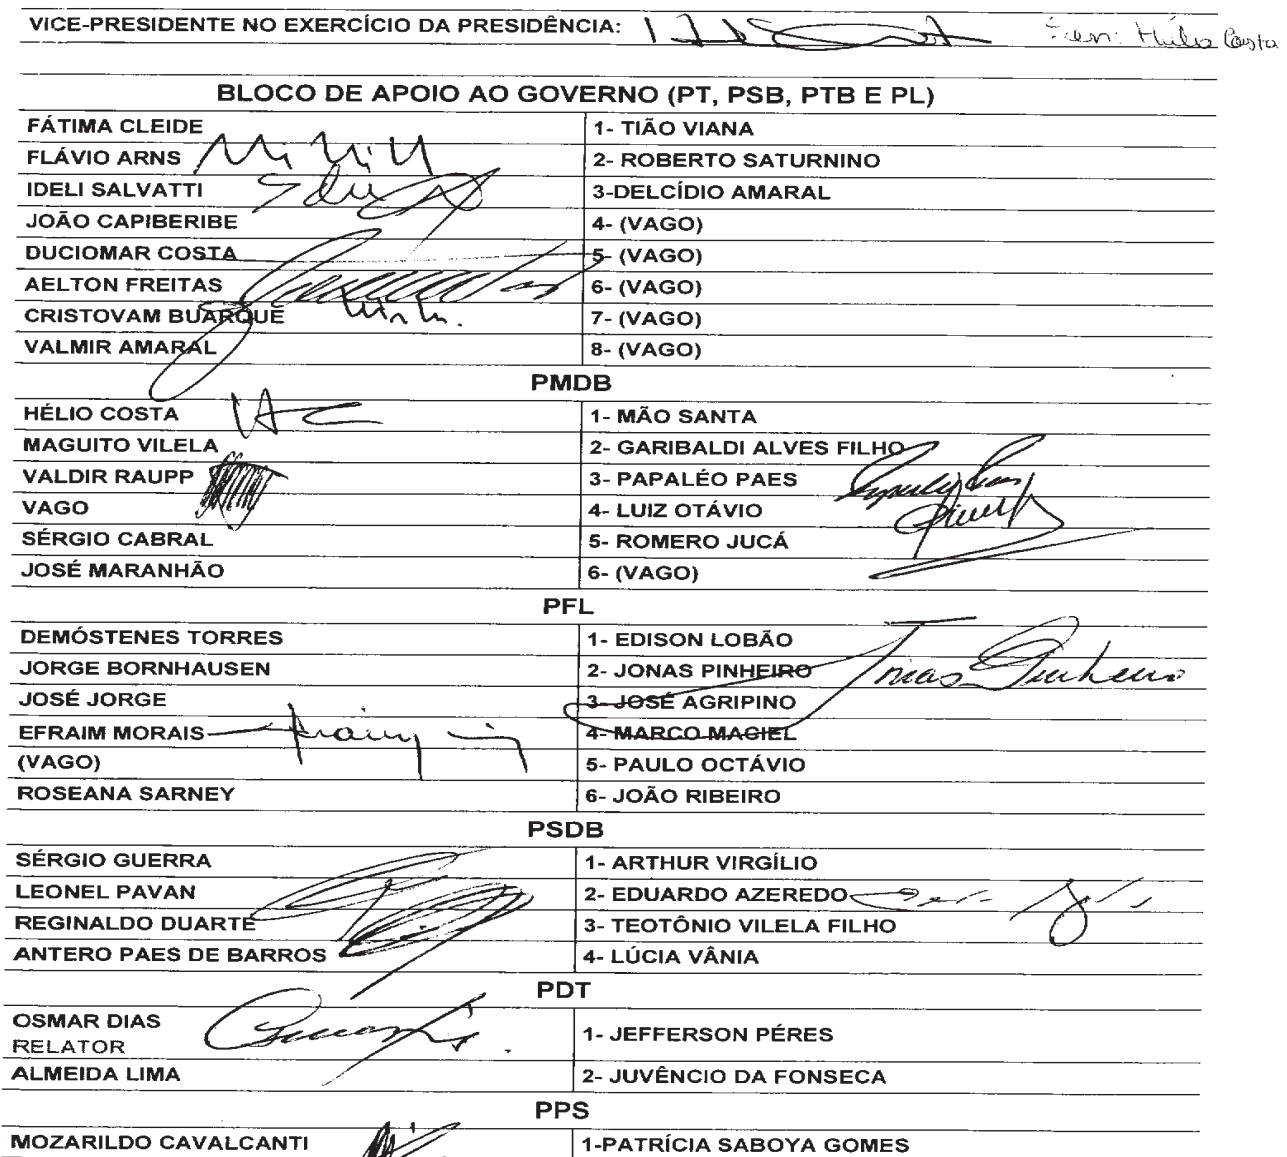 VICE-PRESIDENTE NO EXERCÍCIO DA PRESIDÊNCIA: Sen. Hélio Costa
BLOCO DE APOIO AO GOVERNO (PT, PSB, PTB E PL)
FÁTIMA CLEIDE 1- TIÃO VIANA
FLÁVIO ARNS 2- ROBERTO SATURNINO
IDELI SALVATTI 3-DELCÍDIO AMARAL
JOÃO CAPIBERIBE 4- (VAGO)
DUCIOMAR COSTA 5- (VAGO)
AELTON FREITAS 6- (VAGO)
CRISTOVAM BUARQUE 7- (VAGO)
VALMIR AMARAL 8- (VAGO)
PMDB
HÉLIO COSTA 1- MÃO SANTA
MAGUITO VILELA 2- GARIBALDI ALVES FILHO
VALDIR RAUPP 3- PAPALÉO PAES
VAGO 4- LUIZ OTÁVIO
SÉRGIO CABRAL 5- ROMERO JUCÁ
JOSÉ MARANHÃO 6- (VAGO)
PFL
DEMÓSTENES TORRES 1- EDISON LOBÃO
JORGE BORNHAUSEN 2- JONAS PINHEIRO Jonas Pinheiro
JOSÉ JORGE 3- JOSÉ AGRIPINO
EFRAIM MORAIS 4- MARCO MACIEL
(VAGO) 5- PAULO OCTÁVIO
ROSEANA SARNEY 6- JOÃO RIBEIRO
PSDB
SÉRGIO GUERRA 1- ARTHUR VIRGÍLIO
LEONEL PAVAN 2- EDUARDO AZEREDO
REGINALDO DUARTE 3- TEOTÔNIO VILELA FILHO
ANTERO PAES DE BARROS 4- LÚCIA VÂNIA
PDT
OSMAR DIAS 1- JEFFERSON PÉRES
RELATOR
ALMEIDA LIMA 2- JUVÊNCIO DA FONSECA
PPS
MOZARILDO CAVALCANTI 1-PATRÍCIA SABOYA GOMES